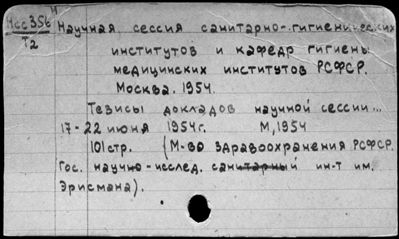 Нсс356 Научная сессия санитарно-гигиенических
Т2
институтов и кафедр гигиены
медицинских институтов РСФСР.
Москва. 1954.
Тезисы докладов научной сессии...
17-22 июня 1954г. М, 1954
101стр. (М-во здравоохранения РСФСР.
Гос. научно-исслед. санитарный ин-т им.
Эрисмана).